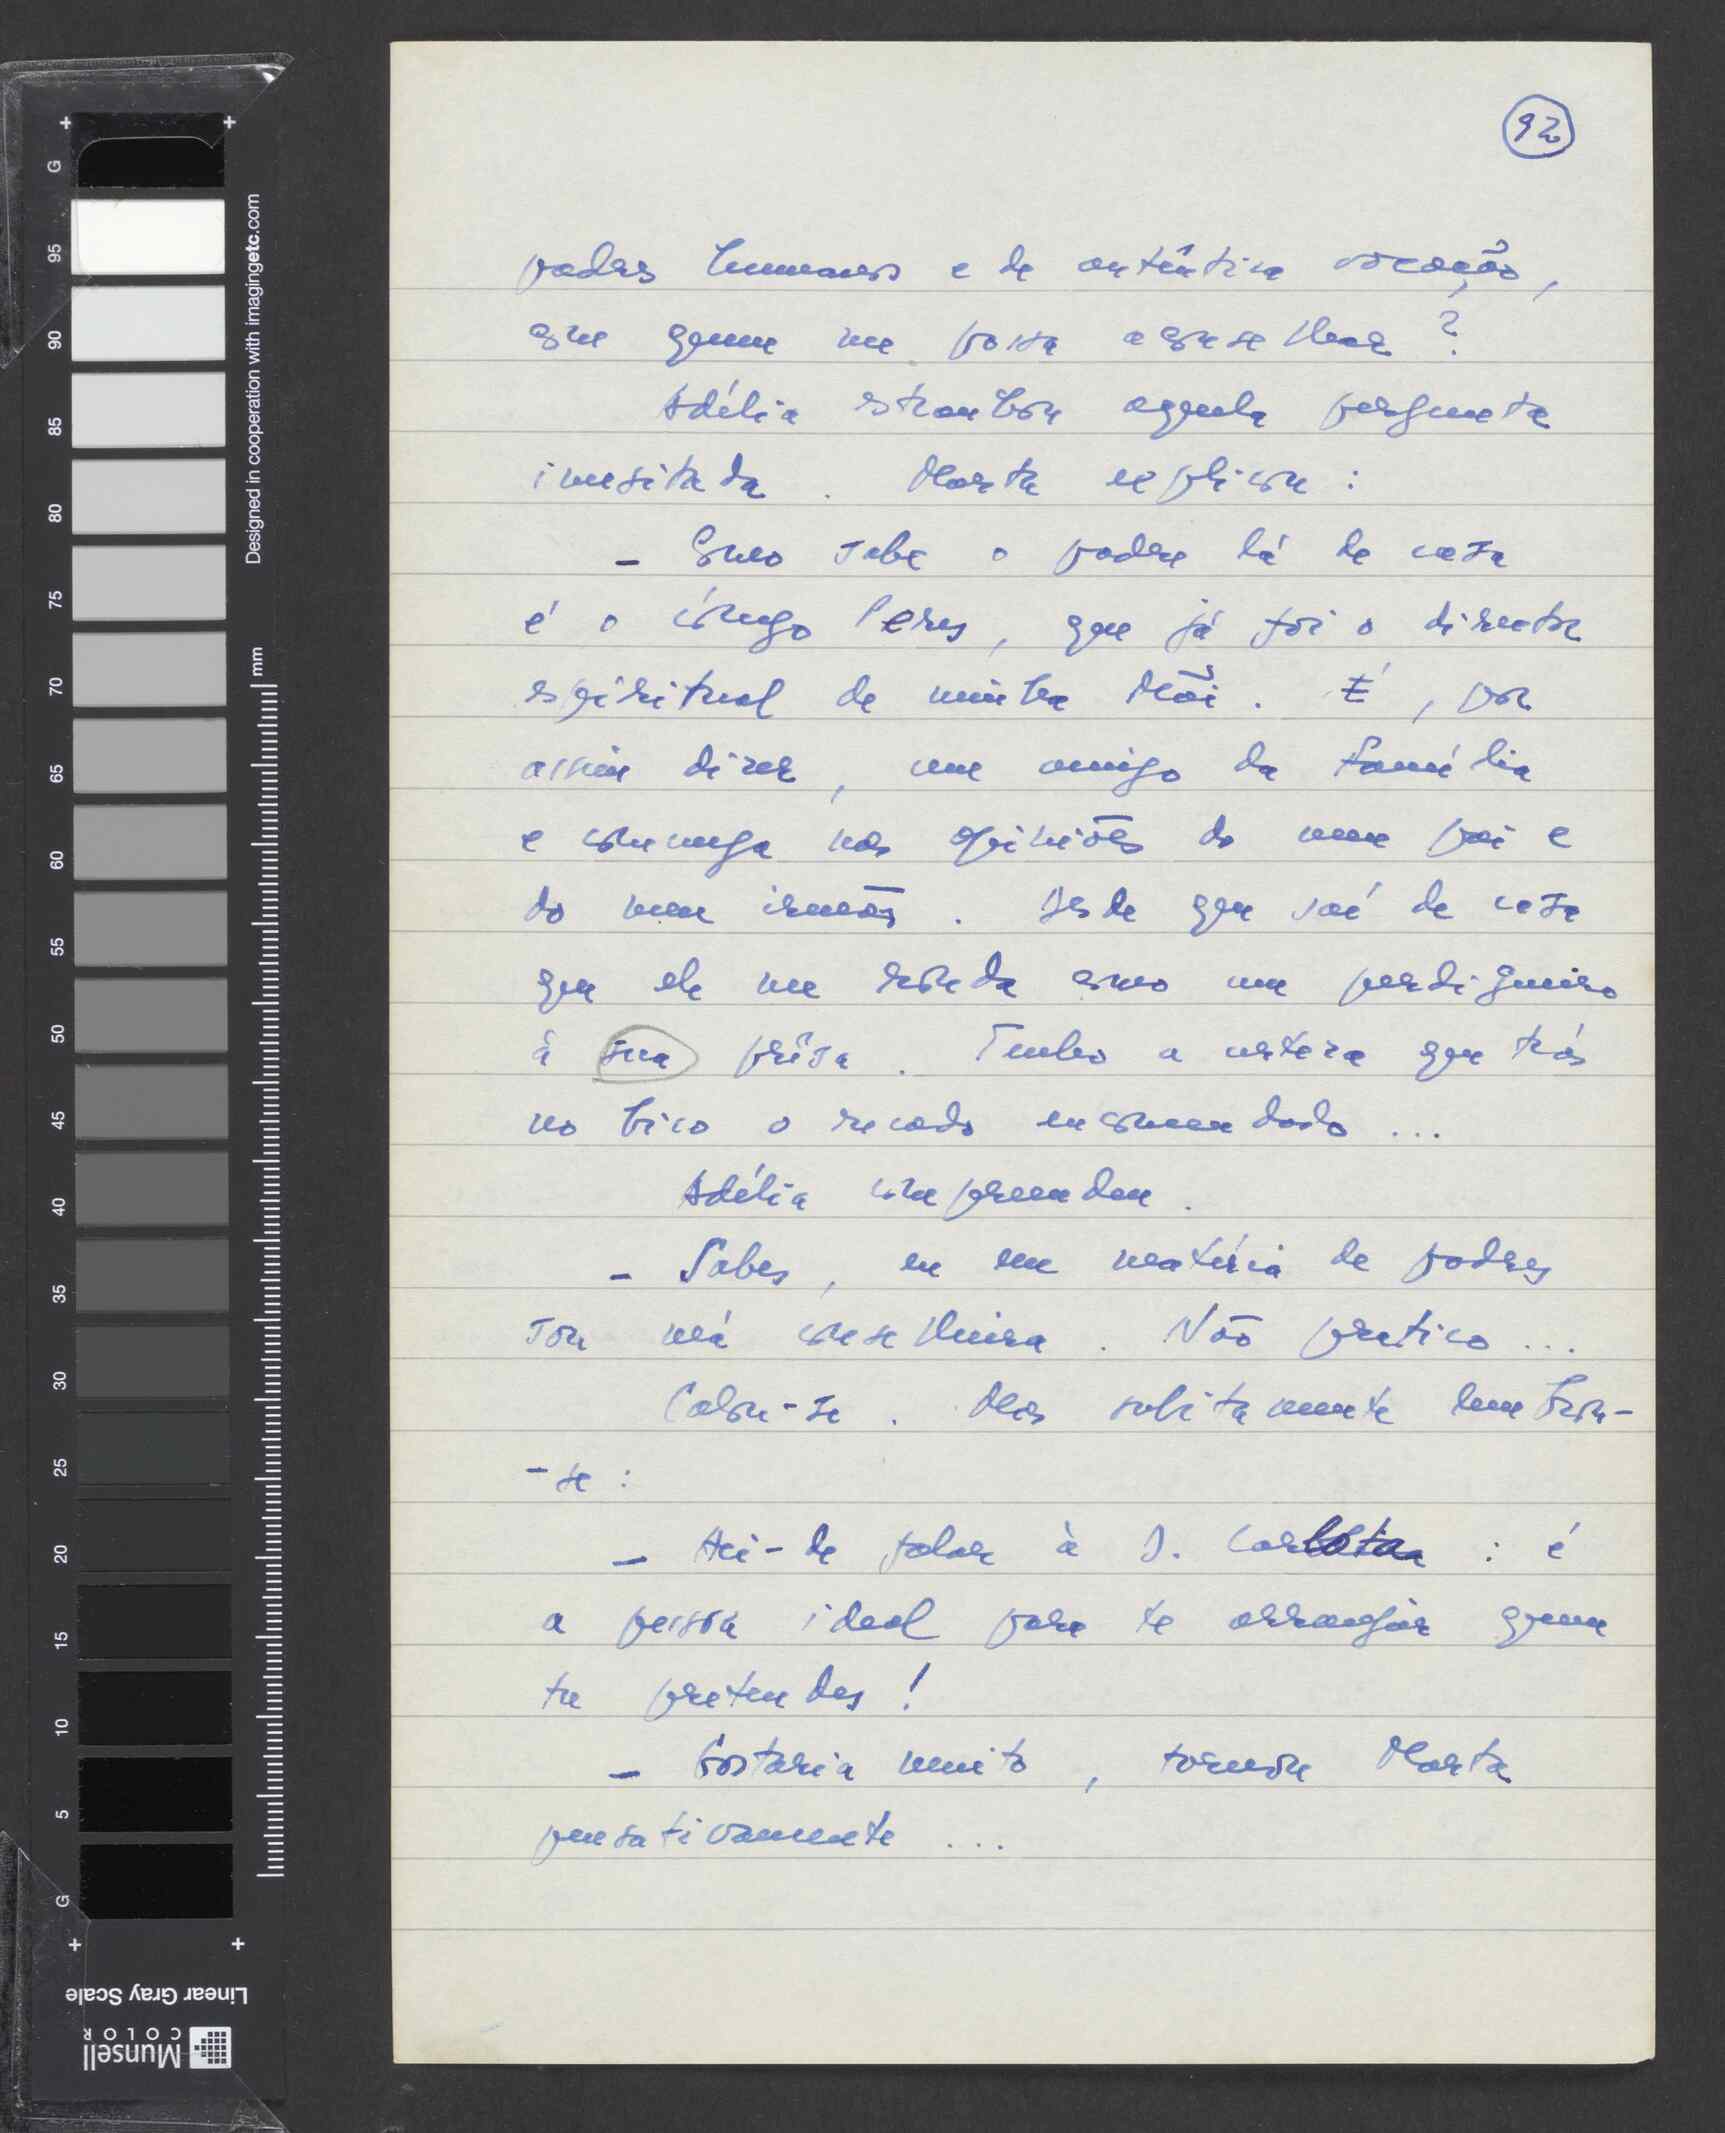 92
padres humanos e de autêntica vocação,
com quem me possa aconselhar?
Adélia estranhou aquela pergunta
inusitada. Marta explicou:
- Como sabe o padre lá de casa
é o cónego Peres, que já foi o director
espiritual de minha Mãi. É, por
assim dizer, um amigo da família
e comunga nas opiniões do meu pai e
do meu irmão. Desde que saí de casa
que ele me ronda como um perdigueiro
à sua prêsa. Tenho a certeza que trás
no bico o recado encomendado...
Adélia compreendeu.
- Sabes, eu em matéria de padres
sou má conselheira. Não pratico...
Calou-se. Mas subitamente lembrou-
-se:
- Hei-de falar à D. Carlota: é
a pessoa ideal para te arranjar quem
tu pretendes!
- Gostaria muito, tornou Marta
pensativamente...
G
95
90
85
80
75
70
65
60
55
50
45
40
35
30
25
20
15
10
5
G
Designed in cooperation with imagingetc.com
mm
Linear Gray Scale
Munsell
COLOR